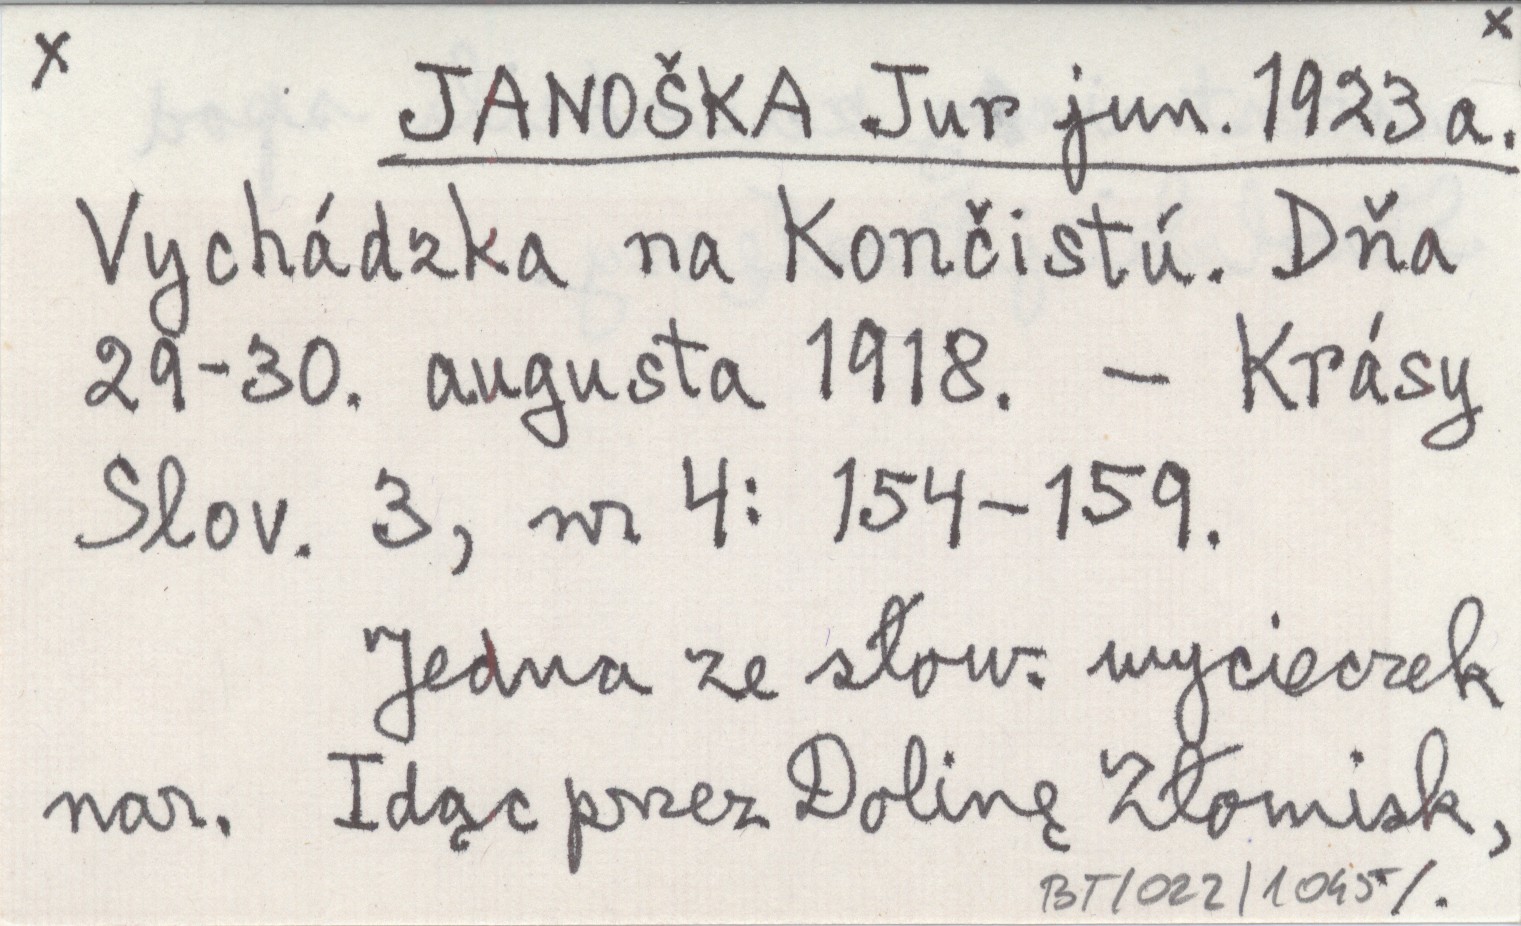 x x
JANOŠKA Jur jun. 1923a.
Vychádzka na Končistú. Dňa
29-30. augusta 1918. — Krásy
Slov. 3, nr 4: 154-159.
Jedna ze słow. wycieczek
nar. Idąc przez Dolinę Złomisk,
BT/022/1045/.